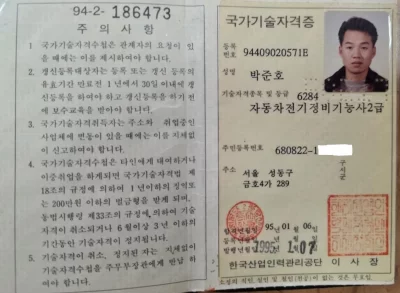 94-2- 186473
주 의 사 항
1. 국가기술자격수첩은 관계자의 요청이 있
을 때에는 이를 제시하여야 합니다.
2. 갱신등록대상자는 등록 또는 갱신 등록의
유효기간 만료전 1년에서 30일 이내에 갱
신등록을 하여야 하고 갱신등록을 하기 전
에 보수교육을 받아야 합니다.
3. 국가기술자격취득자는 주소와 취업중인
사업체에 변동이 있을 때에는 이를 지체없
이 신고하여야 합니다.
4. 국가기술자격수첩은 타인에게 대여하거나
이중취업을 하게되면 국가기술자격법 제
18조의 규정에 의하여 1년이하의 징역또
는 200만원 이하의 벌금형을 받게 되며,
동법시행령 제33조의 규정에 의하여 기술
자격이 취소되거나 6월이상 3년 이하의
기간동안 기술자격이 정지됩니다.
5. 기술자격이 취소, 정지된 자는 지체없이
기술자격수첩을 주무부장관에게 반납 하
여야 합니다.
국가기술자격증
등록
번호 94409020571B
성명 박준호
기술자격종목 및 등급 6284
자동차전기정비기능사2급
주민등록번호 680822-1
주소 서울 성동구
금호4가 289
합격년월일 95년 01월 06일
등록년월일
발행년월일 1995. 1. 07
한국산업인력관리공단 이 사 장
소정의 직인, 철인 및 천인(천공)이 없는 것은 무효임.